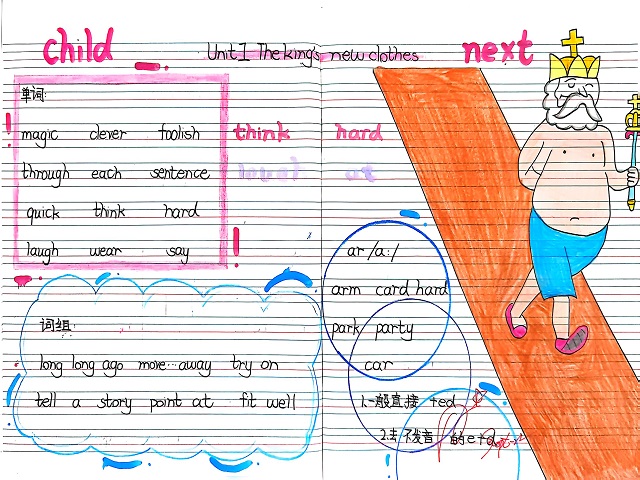 child
Unit1 The king's new clothes
next
单词:
magic clever foolish
through each sentence
quick think hard
laugh wear say
think hard
at
ar /a:/
arm card hard
park party
car
词组:
long long ago move…away try on
tell a story point at fit well
1.一般直接 +ed
2.去不发音的e+